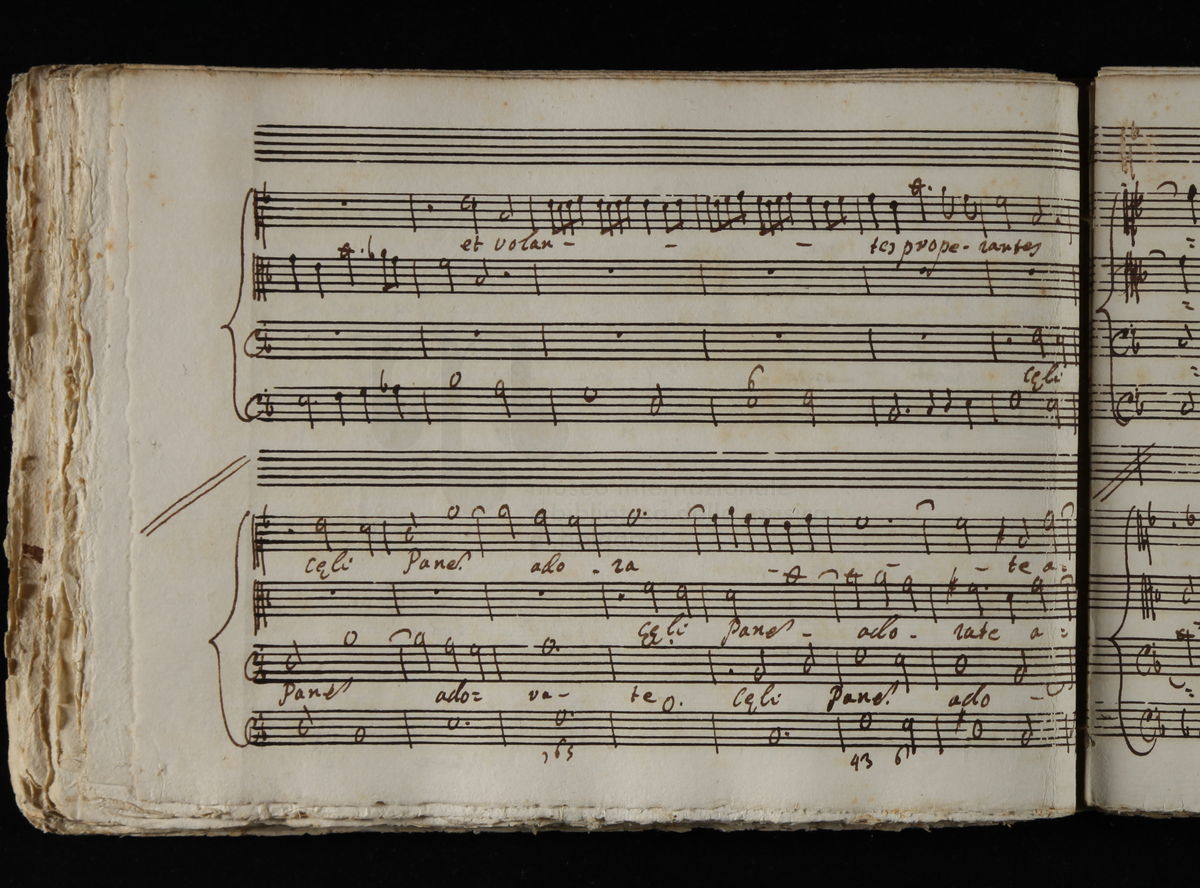 et volan - - - tes prope- rantes
cęli
6
cęli Panes ado - ra - - te a-
cęli Panes - ado - rate a-
Panes ado= ra- te o. cęli Panes ado -
765 43 6